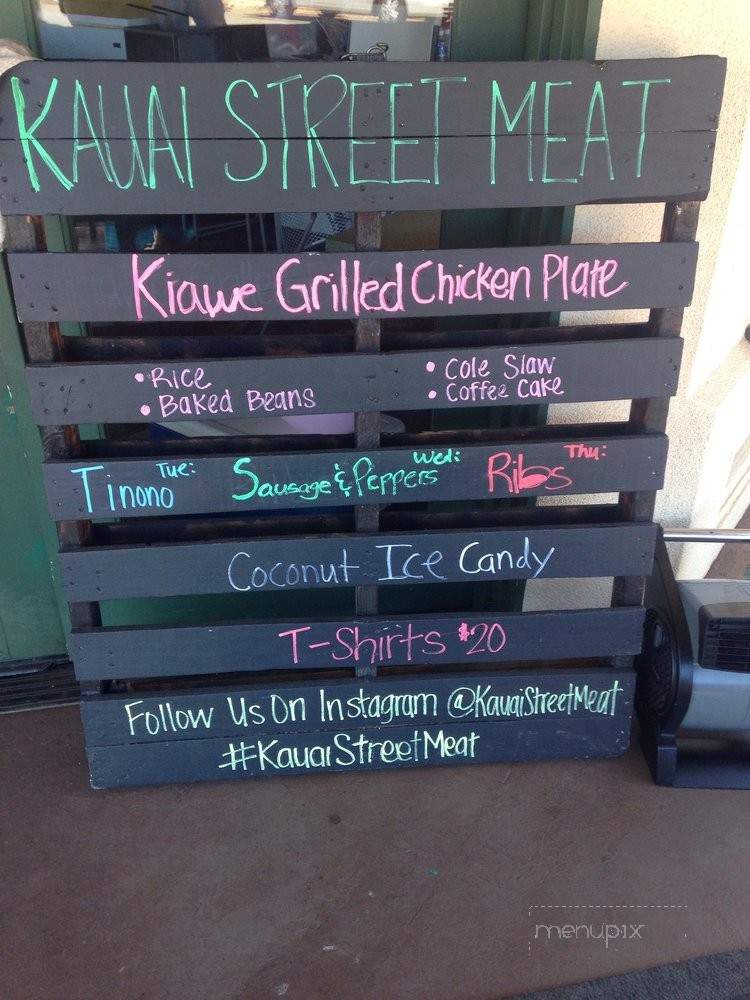 KAUAI STREET MEAT
Kiawe Grilled Chicken Plate
• Rice
• Baked Beans
• Cole Slaw
• Coffee Cake
Tinono Tue: Sausage & Peppers Wed: Ribs Thu:
Coconut Ice Candy
T-Shirts $20
Follow Us On Instagram @KauaiStreetMeat
#KauaiStreetMeat
menupix